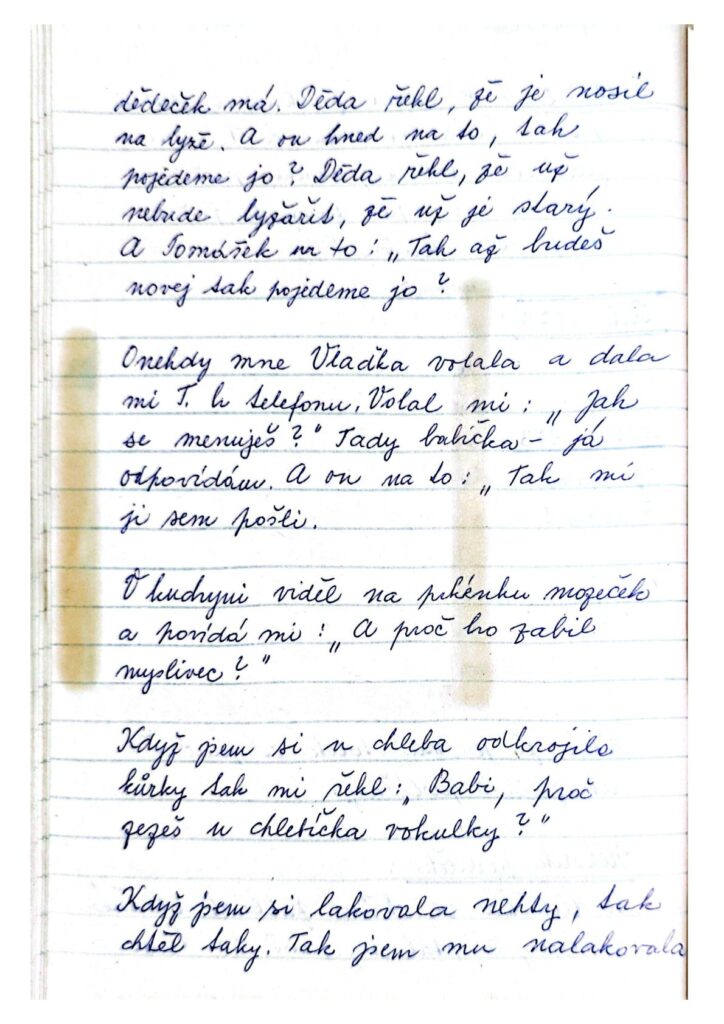 dědeček má. Děda řekl, že je nosil
na lyže. A on hned na to, tak
pojedeme jo? Děda řekl, že už
nebude lyžařit, že už je starý.
A Tomášek na to: „Tak až budeš
novej tak pojedeme jo?
Onehdy mne Vlaďka volala a dala
mi T. k telefonu. Volal mi: „Jak
se menuješ?" Tady babička - já
odpovídám. A on na to: „Tak mi
ji sem pošli.
V kuchyni viděl na prkénku mozeček
a povídá mi: „A proč ho zabil
myslivec?"
Když jsem si u chleba odkrojila
kůrky tak mi řekl: „Babi, proč
žežeš u chletíčka vokulky?"
Když jsem si lakovala nehty, tak
chtěl taky. Tak jsem mu nalakovala